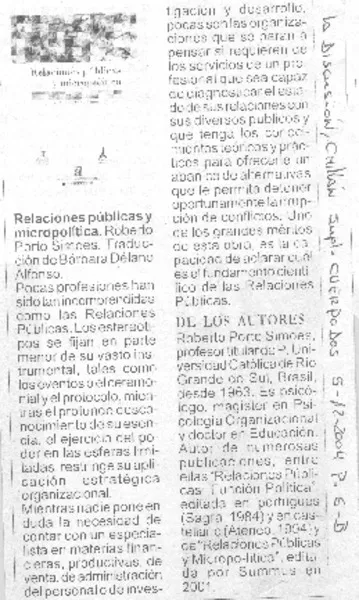 Relaciones públicas
y micropolítica
a
Relaciones públicas y
micropolítica. Roberto
Porto Simoes. Traduc-
ción de Bárbara Délano
Alfonso.
Pocas profesiones han
sido tan incomprendidas
como las Relaciones
Públicas. Los estereoti-
pos se fijan en parte
menor de su vasto ins-
trumental, tales como
los eventos o el ceremo-
nial y el protocolo, mien-
tras el profundo desco-
nocimiento de su esen-
cia, el ejercicio del po-
der en las esferas limi-
tadas, restringe su apli-
cación estratégica
organizacional.
Mientras nadie pone en
duda la necesidad de
contar con un especia-
lista en materias finan-
cieras, productivas, de
venta, de administración
del personal o de inves-
tigación y desarrollo,
pocas son las organiza-
ciones que se paran a
pensar si requieren de
los servicios de un pro-
fesional que sea capaz
de diagnosticar el esta-
do de sus relaciones con
sus diversos públicos y
que tenga los conoci-
mientos teóricos y prác-
ticos para ofrecerle un
abanico de alternativas
que le permita detener
oportunamente la irrup-
ción de conflictos. Uno
de los grandes méritos
de esta obra, es la ca-
pacidad de aclarar cuál
es el fundamento cientí-
fico de las Relaciones
Públicas.
DE LOS AUTORES
Roberto Porto Simoes,
profesor titular de P. Uni-
versidad Católica de Río
Grande do Sul, Brasil,
desde 1963. Es psicó-
logo, magíster en Psi-
cología Organizacional
y doctor en Educación.
Autor de numerosas
publicaciones, entre
ellas "Relaciones Públi-
cas: Función Política",
editada en portugués
(Sagra, 1984) y en cas-
tellano (Ateneo, 1994) y
de "Relaciones Públicas
y Micropo-lítica", edita-
da por Summus en
2001.
la Discusión, Chillán Supl. CUERPO DOS 5-12-2004 P. 6-B